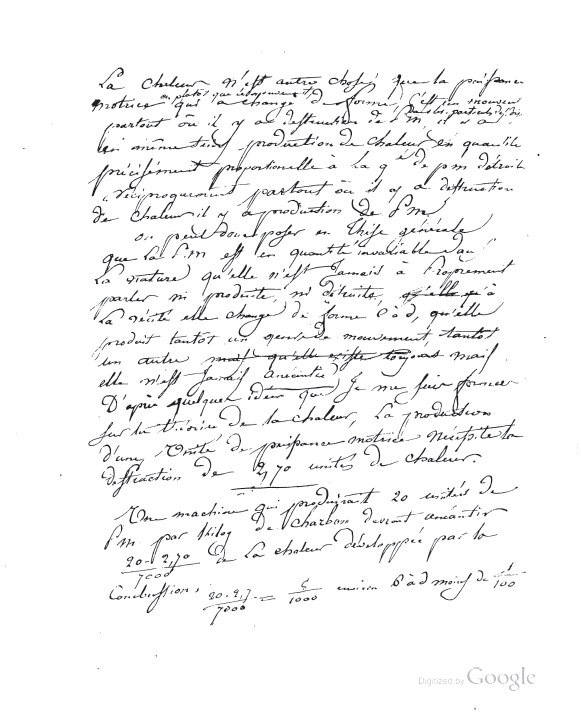 La chaleur n'est autre chose que la puissance
motrice ou plutôt que le mouvement qui a changé de forme, c'est un mouvement
dans les particules des
partout où il y a destruction de P.m il y a
en même tems production de chaleur en quantité
précisément proportionelle à la q.té de p m détruite
réciproquement partout où il y a destruction
de chaleur il y a production de P m
on peut donc poser en thèse générale
que la P.m est en quantité invariable dans
la nature qu'elle n'est jamais à proprement
parler ni produite, ni détruite, qu'elle à
la vérité elle change de forme C à d, qu'elle
produit tantôt un genre de mouvement, tantôt
un autre mais qu'elle existe toujours mais
elle n'est jamais anéantie
D'après quelques idées que je me suis formées
sur la théorie de la chaleur, la production
d'une unité de puissance motrice nécessite la
destruction de 2,70 unités de chaleur.
Une machine qui produirait 20 unités de
P m par Kilog de charbon devrait anéantir
20 . 2,70
7000 de la chaleur développée par la
Combustion; 20 . 2,7 / 7000 = 8 / 1000 environ C à d moins de 1/100
Digitized by Google